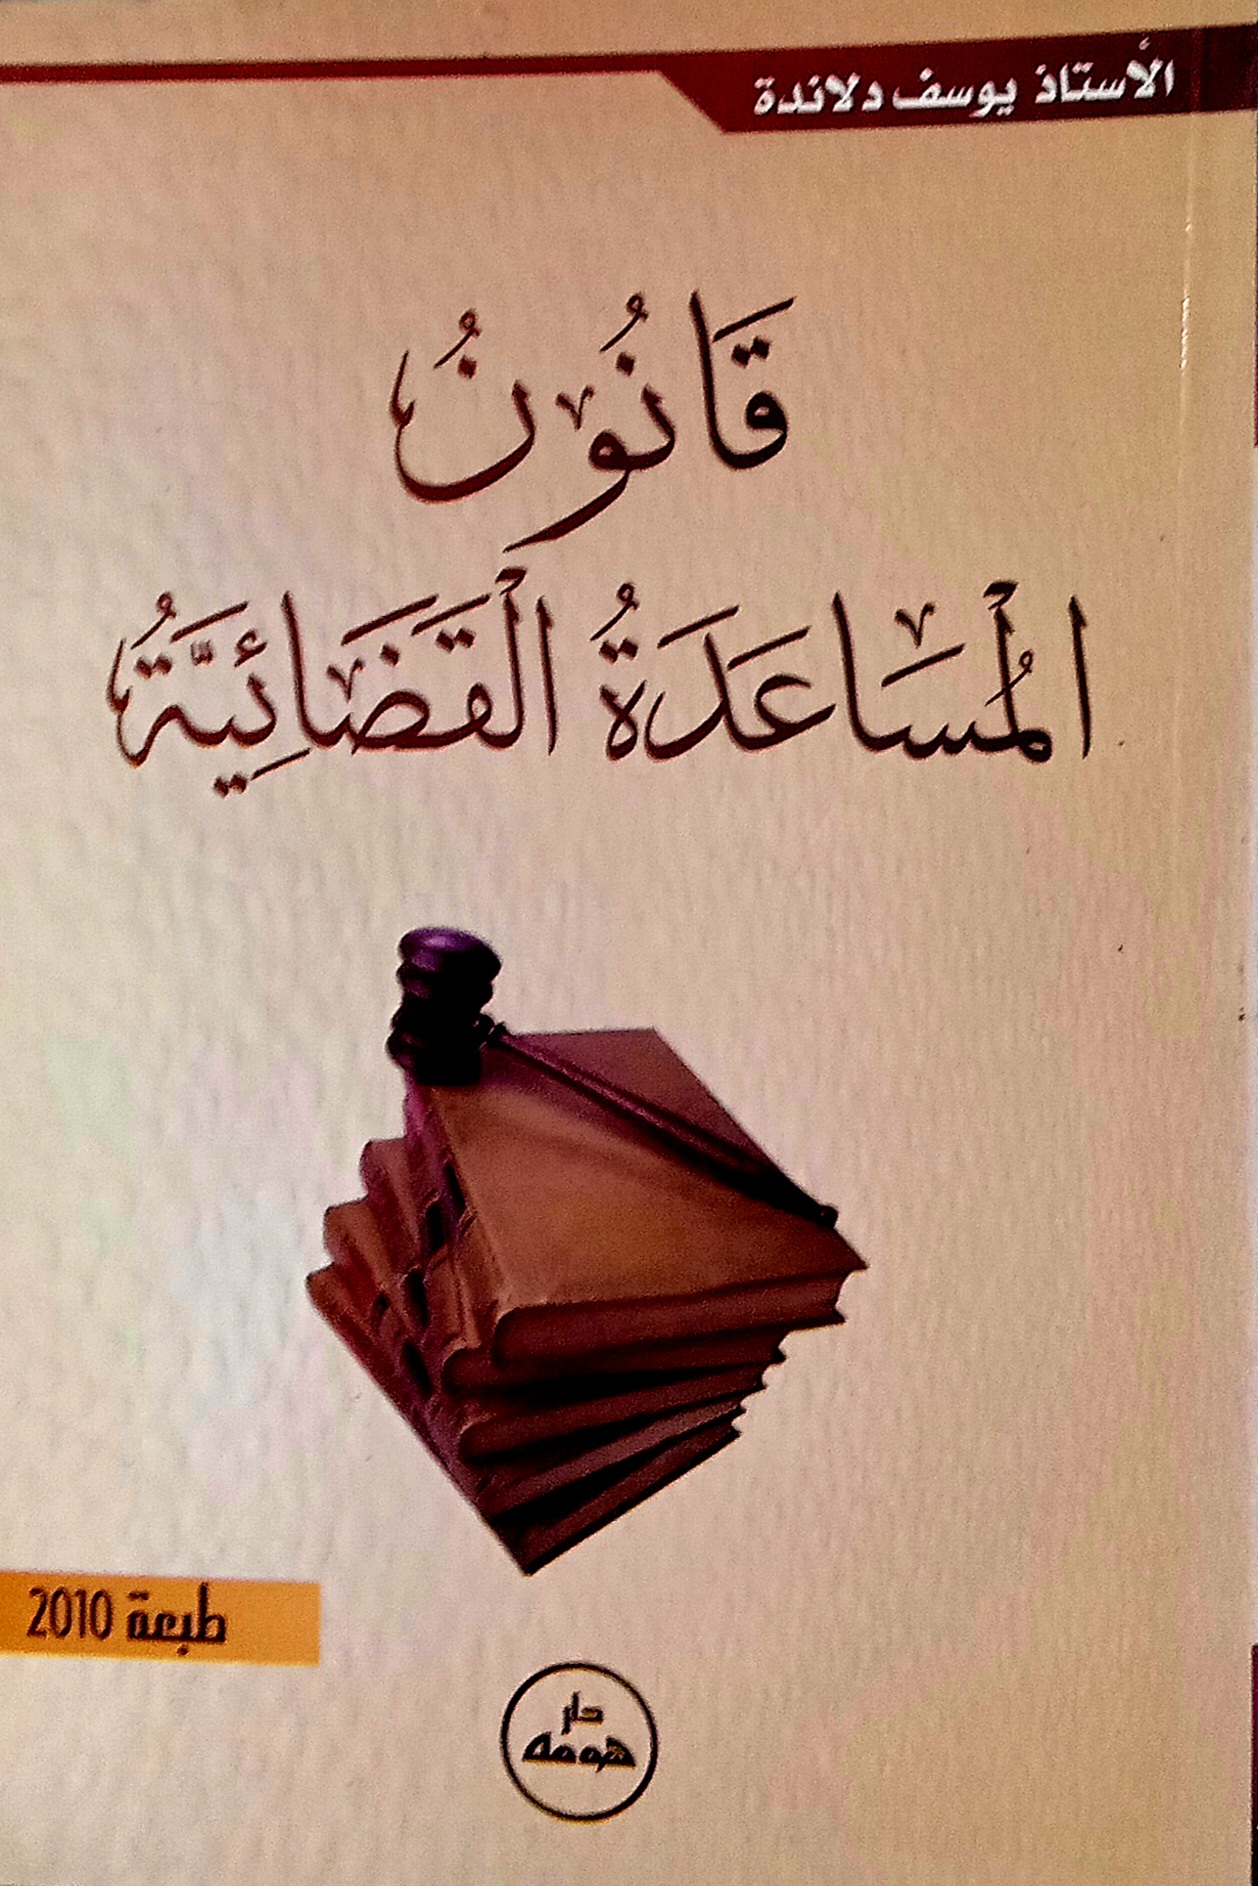 الأستاذ يوسف دلاندة
قَانُونُ
المُسَاعَدَةُ القَضَائِيَّةُ
طبعة 2010
دار
هومه